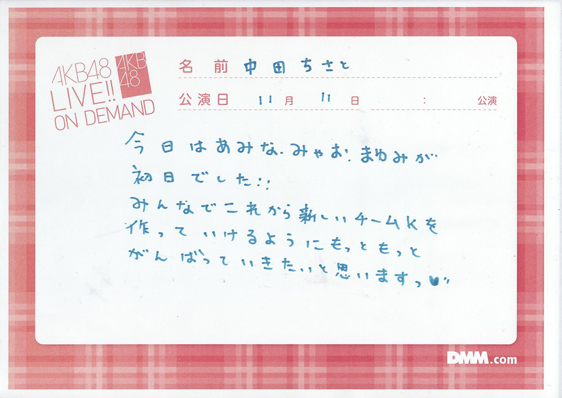 AKB48
LIVE!!
ON DEMAND
AKB
48
名前 中田ちさと
公演日 11月 11日 : 公演
今日はあみな.みゃお.まゆみが
初日でした!!
みんなでこれから新しいチームKを
作っていけるようにもっともっと
がんばっていきたいと思いますっ
DMM.com